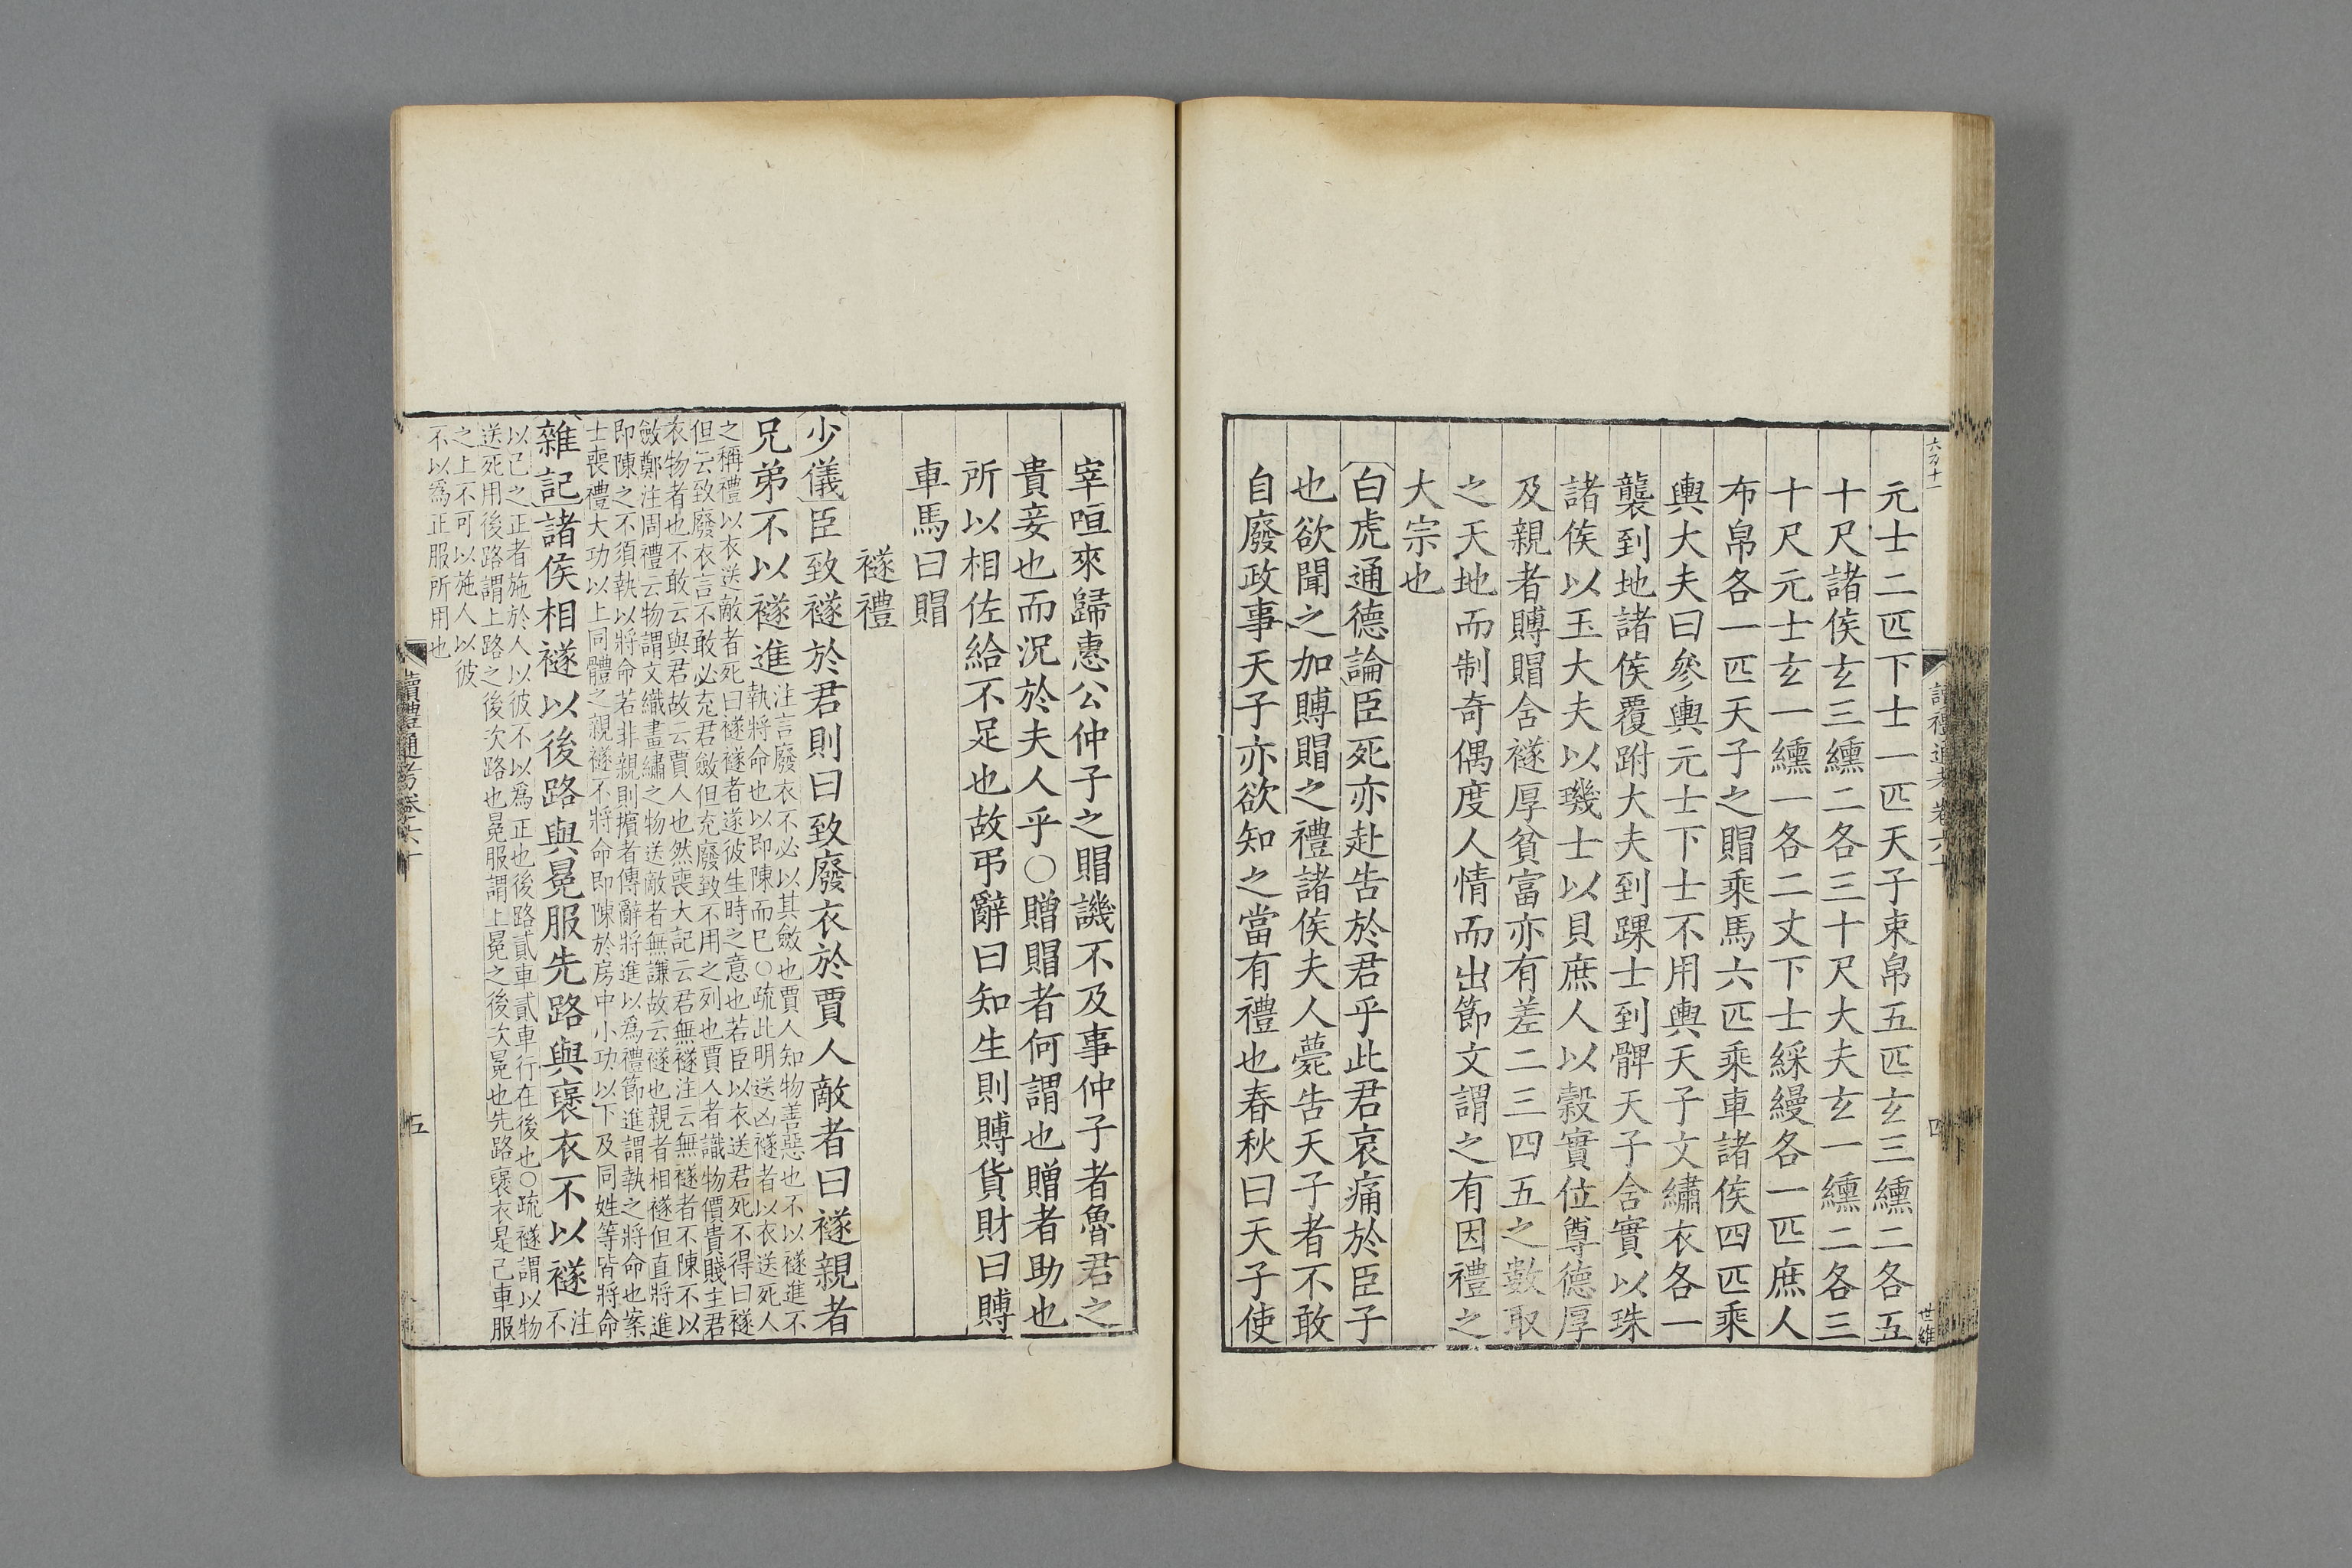 六百十一
讀禮通考卷六十
四
世維
元士二匹下士一匹天子束帛五匹玄三纁二各五
十尺諸侯玄三纁二各三十尺大夫玄一纁二各三
十尺元士玄一纁一各二丈下士綵縵各一匹庶人
布帛各一匹天子之賵乘馬六匹乘車諸侯四匹乘
輿大夫曰參輿元士下士不用輿天子文繡衣各一
襲到地諸侯覆跗大夫到踝士到髀天子含實以珠
諸侯以玉大夫以璣士以貝庶人以穀實位尊德厚
及親者賻賵含襚厚貧富亦有差二三四五之數取
之天地而制奇偶度人情而出節文謂之有因禮之
大宗也
白虎通德論臣死亦赴告於君乎此君哀痛於臣子
也欲聞之加賻賵之禮諸侯夫人薨告天子者不敢
自廢政事天子亦欲知之當有禮也春秋曰天子使
宰咺來歸惠公仲子之賵譏不及事仲子者魯君之
貴妾也而況於夫人乎○贈賵者何謂也贈者助也
所以相佐給不足也故弔辭曰知生則賻貨財曰賻
車馬曰賵
襚禮
少儀臣致襚於君則曰致廢衣於賈人敵者曰襚親者
兄弟不以襚進
注言廢衣不必以其斂也賈人知物善惡也不以襚進不
執將命也以即陳而已○疏此明送凶襚者以衣送死人
之稱禮以衣送敵者死曰襚襚者遂彼生時之意也若臣以衣送君死不得曰襚
但云致廢衣言不敢必充君斂但充廢致不用之列也賈人者識物價貴賤主君
衣物者也不敢云與君故云賈人也然喪大記云君無襚注云無襚者不陳不以
斂鄭注周禮云物謂文織畫繡之物送敵者無謙故云襚也親者相襚但直將進
即陳之不須執以將命若非親則擯者傳辭將進以為禮節進謂執之將命也案
士喪禮大功以上同體之親襚不將命即陳於房中小功以下及同姓等皆將命
雜記諸侯相襚以後路與冕服先路與襃衣不以襚
注
不
以己之正者施於人以彼不以為正也後路貳車貳車行在後也○疏襚謂以物
送死用後路謂上路之後次路也冕服謂上冕之後次冕也先路襃衣是己車服
之上不可以施人以彼
不以為正服所用也
讀禮通考卷六十
五